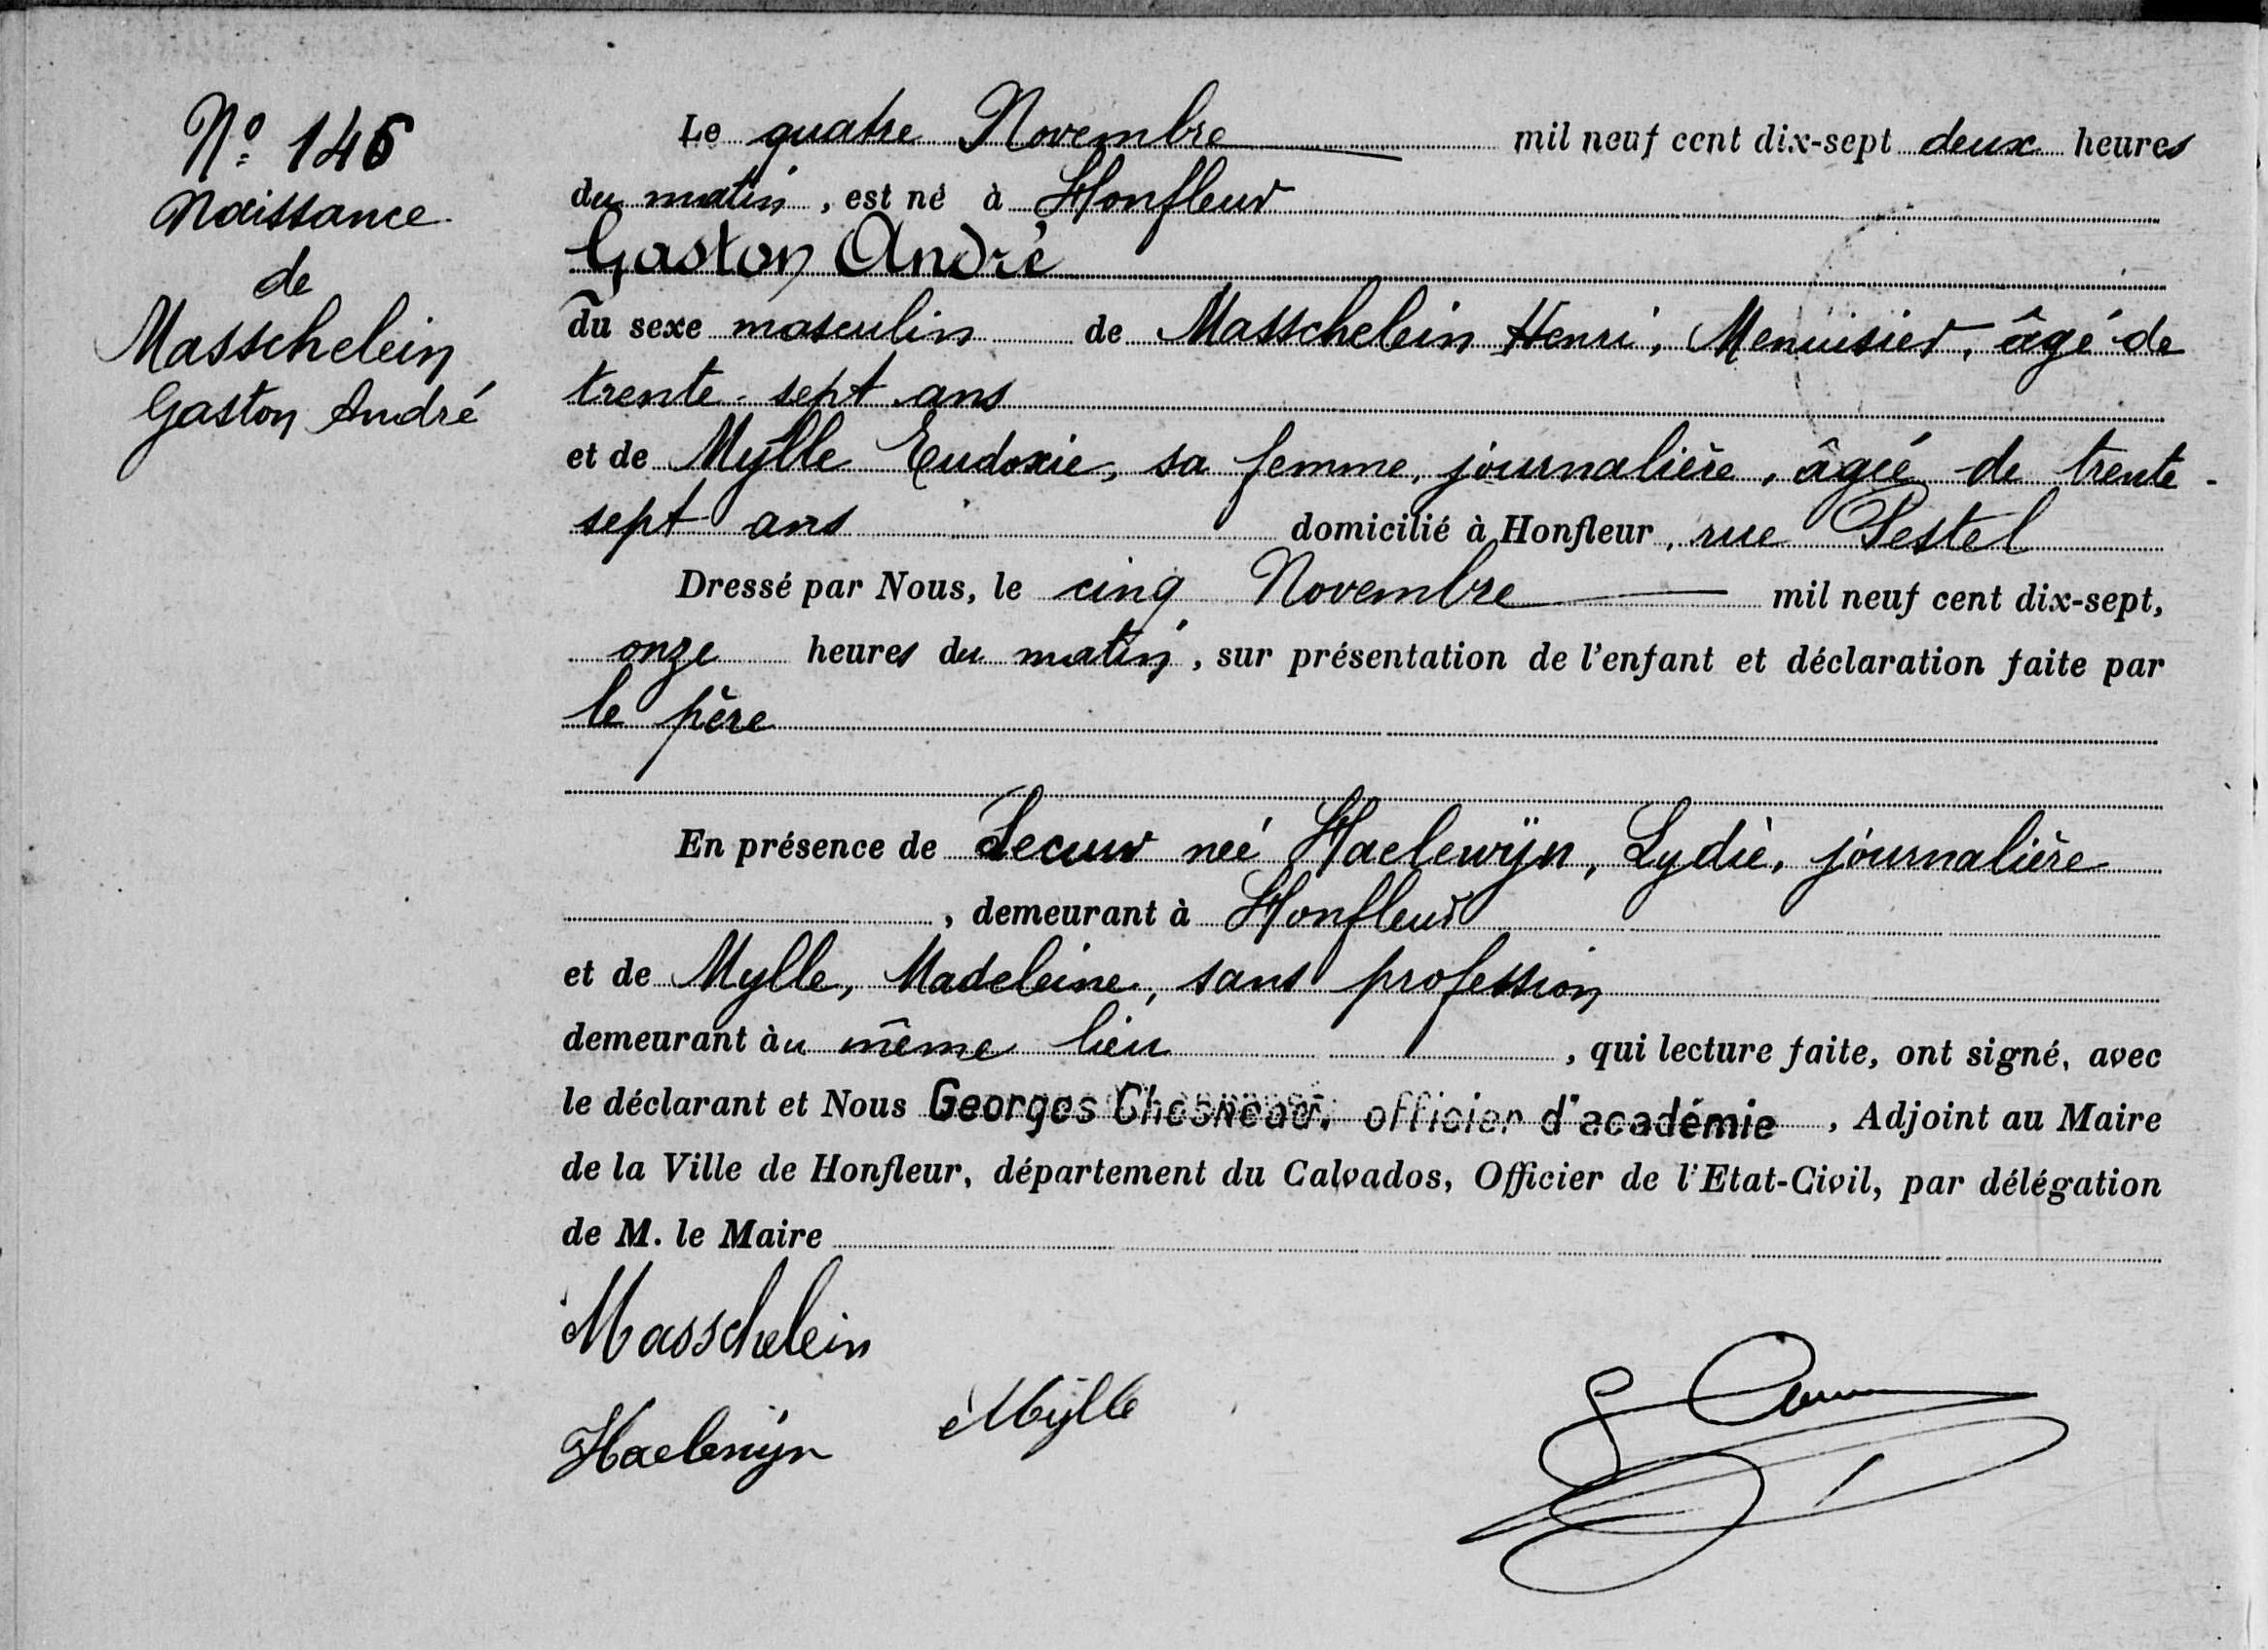 N° 146
Naissance
de
Masschelein
Gaston André
Le quatre Novembre mil neuf cent dix-sept deux heures
du matin, est né à Honfleur
Gaston André
du sexe masculin de Masschelein Henri, Menuisier, âgé de
trente-sept ans
et de Mylle Eudoxie, sa femme, journalière, âgée de trente-
sept ans domicilié à Honfleur, rue Pestel
Dressé par Nous, le cinq Novembre mil neuf cent dix-sept,
onze heures du matin, sur présentation de l'enfant et déclaration faite par
le père
En présence de née Haelewÿn, Lydie, journalière
, demeurant à Honfleur
et de Mylle, Madeleine, sans profession
demeurant àu même lieu, qui lecture faite, ont signé, avec
le déclarant et Nous Georges Chesneau, officier d'académie, Adjoint au Maire
de la Ville de Honfleur, département du Calvados, Officier de l'Etat-Civil, par délégation
de M. le Maire
Masschelein
Haelewÿn Mÿlle